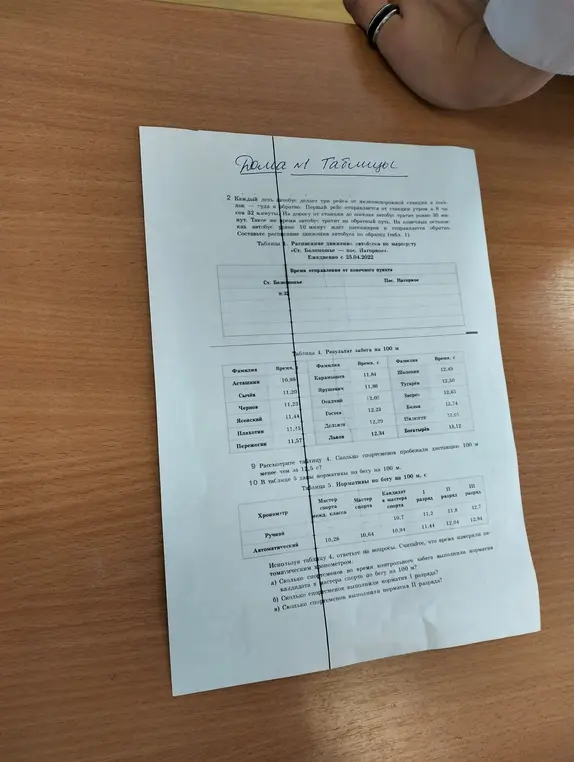 Дома №1 Таблицы
2 Каждый день автобус делает три рейса от железнодорожной станции в посё-
лок — туда и обратно. Первый рейс отправляется от станции утром в 8 ча-
сов 32 минуты. На дорогу от станции до посёлка автобус тратит ровно
нут. Такое же время автобус тратит на обратный путь. На конечных останов-
ках автобус ровно 10 минут ждёт пассажиров и отправляется обратно.
Составьте расписание движения автобуса по образцу (табл. 1).
Таблица Расписание движения автобусов по маршруту
«Ст. — пос. Нагорное».
Ежедневно с 25.04.2022
Время отправления от конечного пункта
Ст. Пос. Нагорное
8.32
Таблица 4. Результат забега на 100 м
Фамилия Время, с Фамилия Время, с Фамилия Время, с
Асташкин 10,98 Карамышев 11,84 Шаповал 12,49
Сычёв 11,20 Ярушевич 11,88 Тугарев 12,50
Чернов 11,23 12,63
Ясенский 11,44 Гостев 12,22 Белов 12,74
Плахотин 12,29
Пережогин 11,57 Львов 12,34 Богатырёв 13,12
9 Рассмотрите таблицу 4. Сколько спортсменов пробежали дистанцию 100 м
менее чем за 12,5 с?
10 В таблице 5 даны нормативы по бегу на 100 м.
Таблица 5. Нормативы по бегу на 100 м, с
Хронометр Мастер спорта межд. класса Мастер спорта Кандидат в мастера спорта I разряд II разряд III разряд
Ручной 10,7 11,2 11,8 12,7
Автоматический 10,28 10,64 10,94 11,44 12,04 12,94
Используя таблицу 4, ответьте на вопросы. Считайте, что время измеряли ав-
томатическим хронометром.
а) Сколько спортсменов во время контрольного забега выполнили норматив
кандидата в мастера спорта по бегу на 100 м?
б) Сколько спортсменов выполнили норматив I разряда?
в) Сколько спортсменов выполнили норматив II разряда?